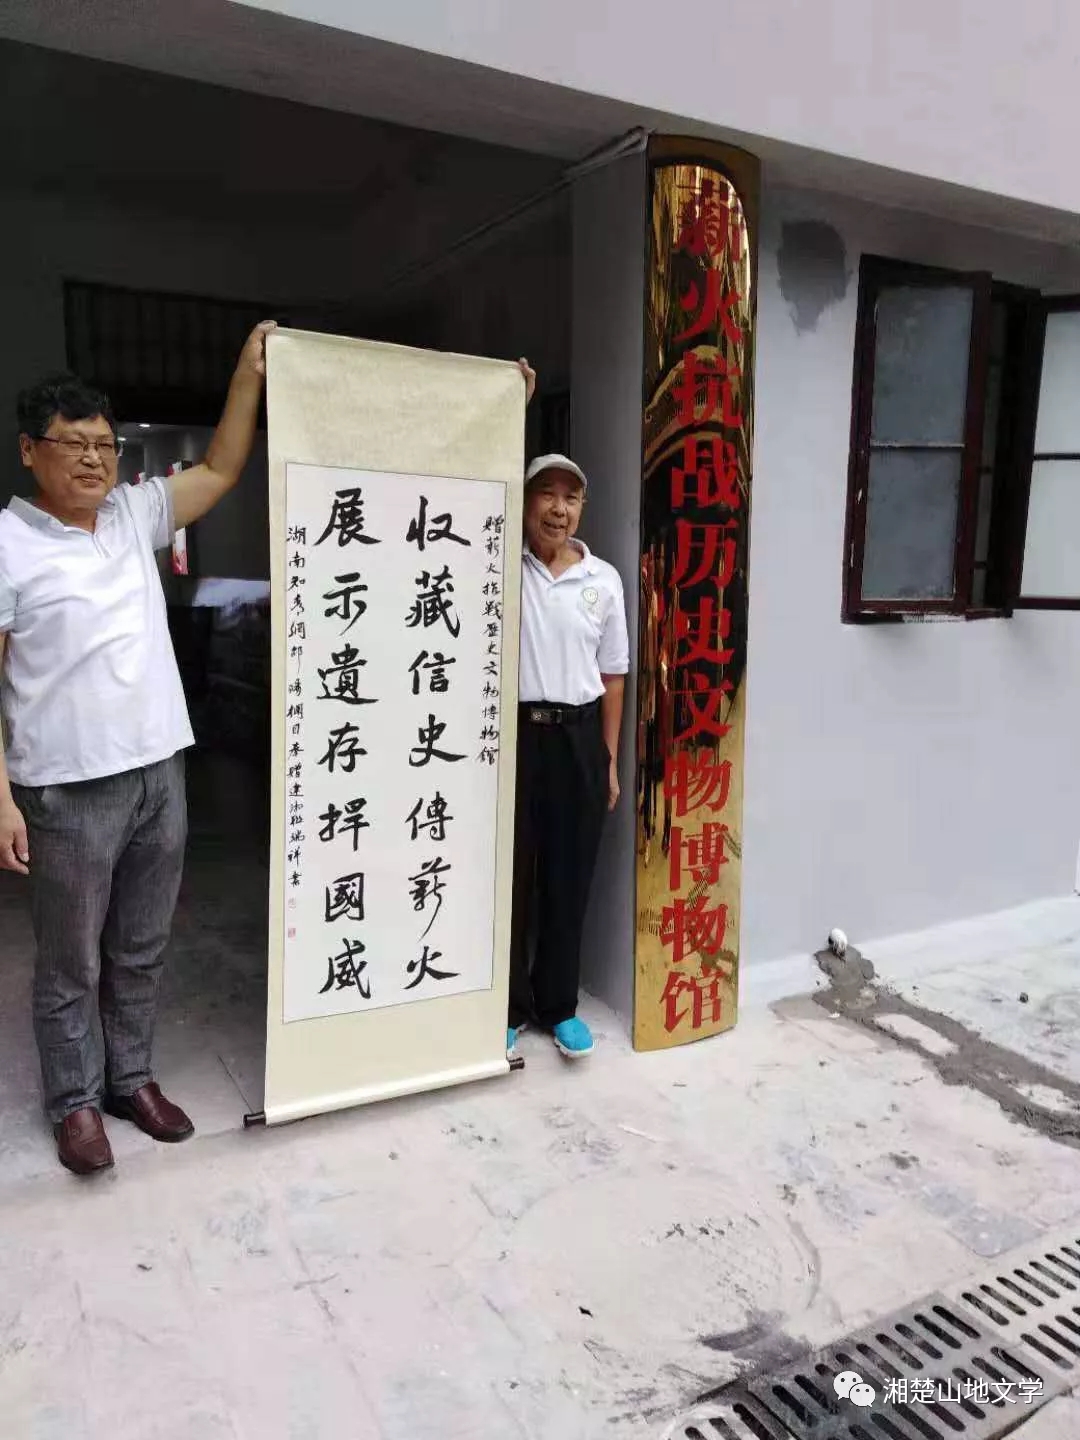 薪火抗战历史文物博物馆
赠薪火抗戰歷史文物博物館
收藏信史傳薪火
展示遺存捍國威
湖南知青網
欄目奉贈
瑞祥書
湘楚山地文学